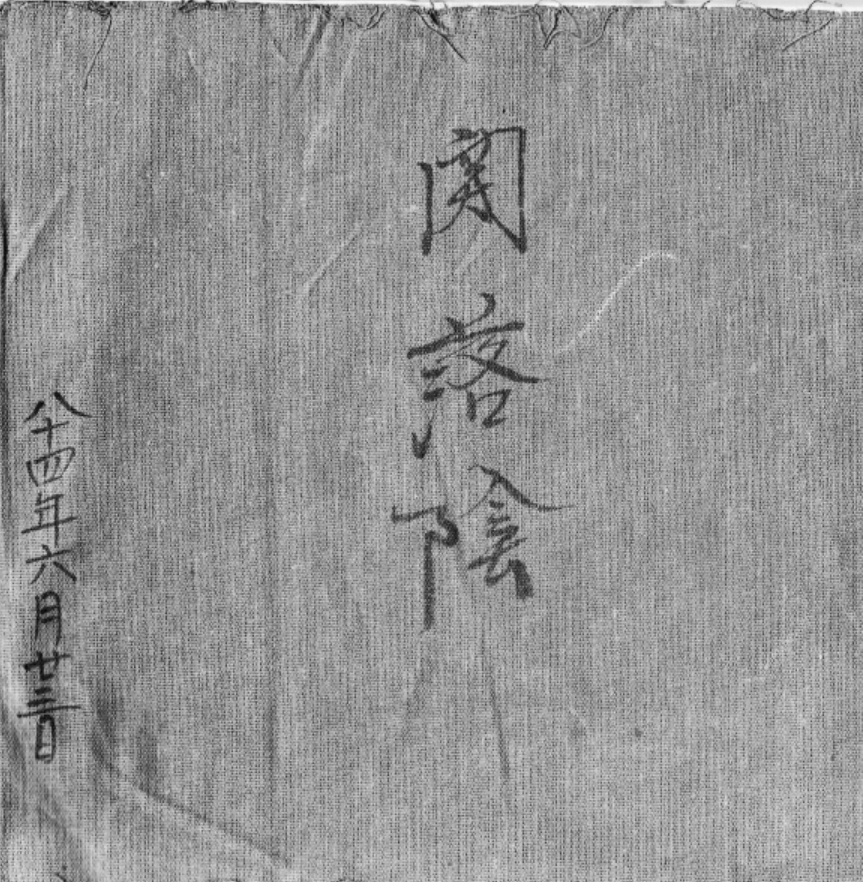 関落陰
八十四年六月廿三日